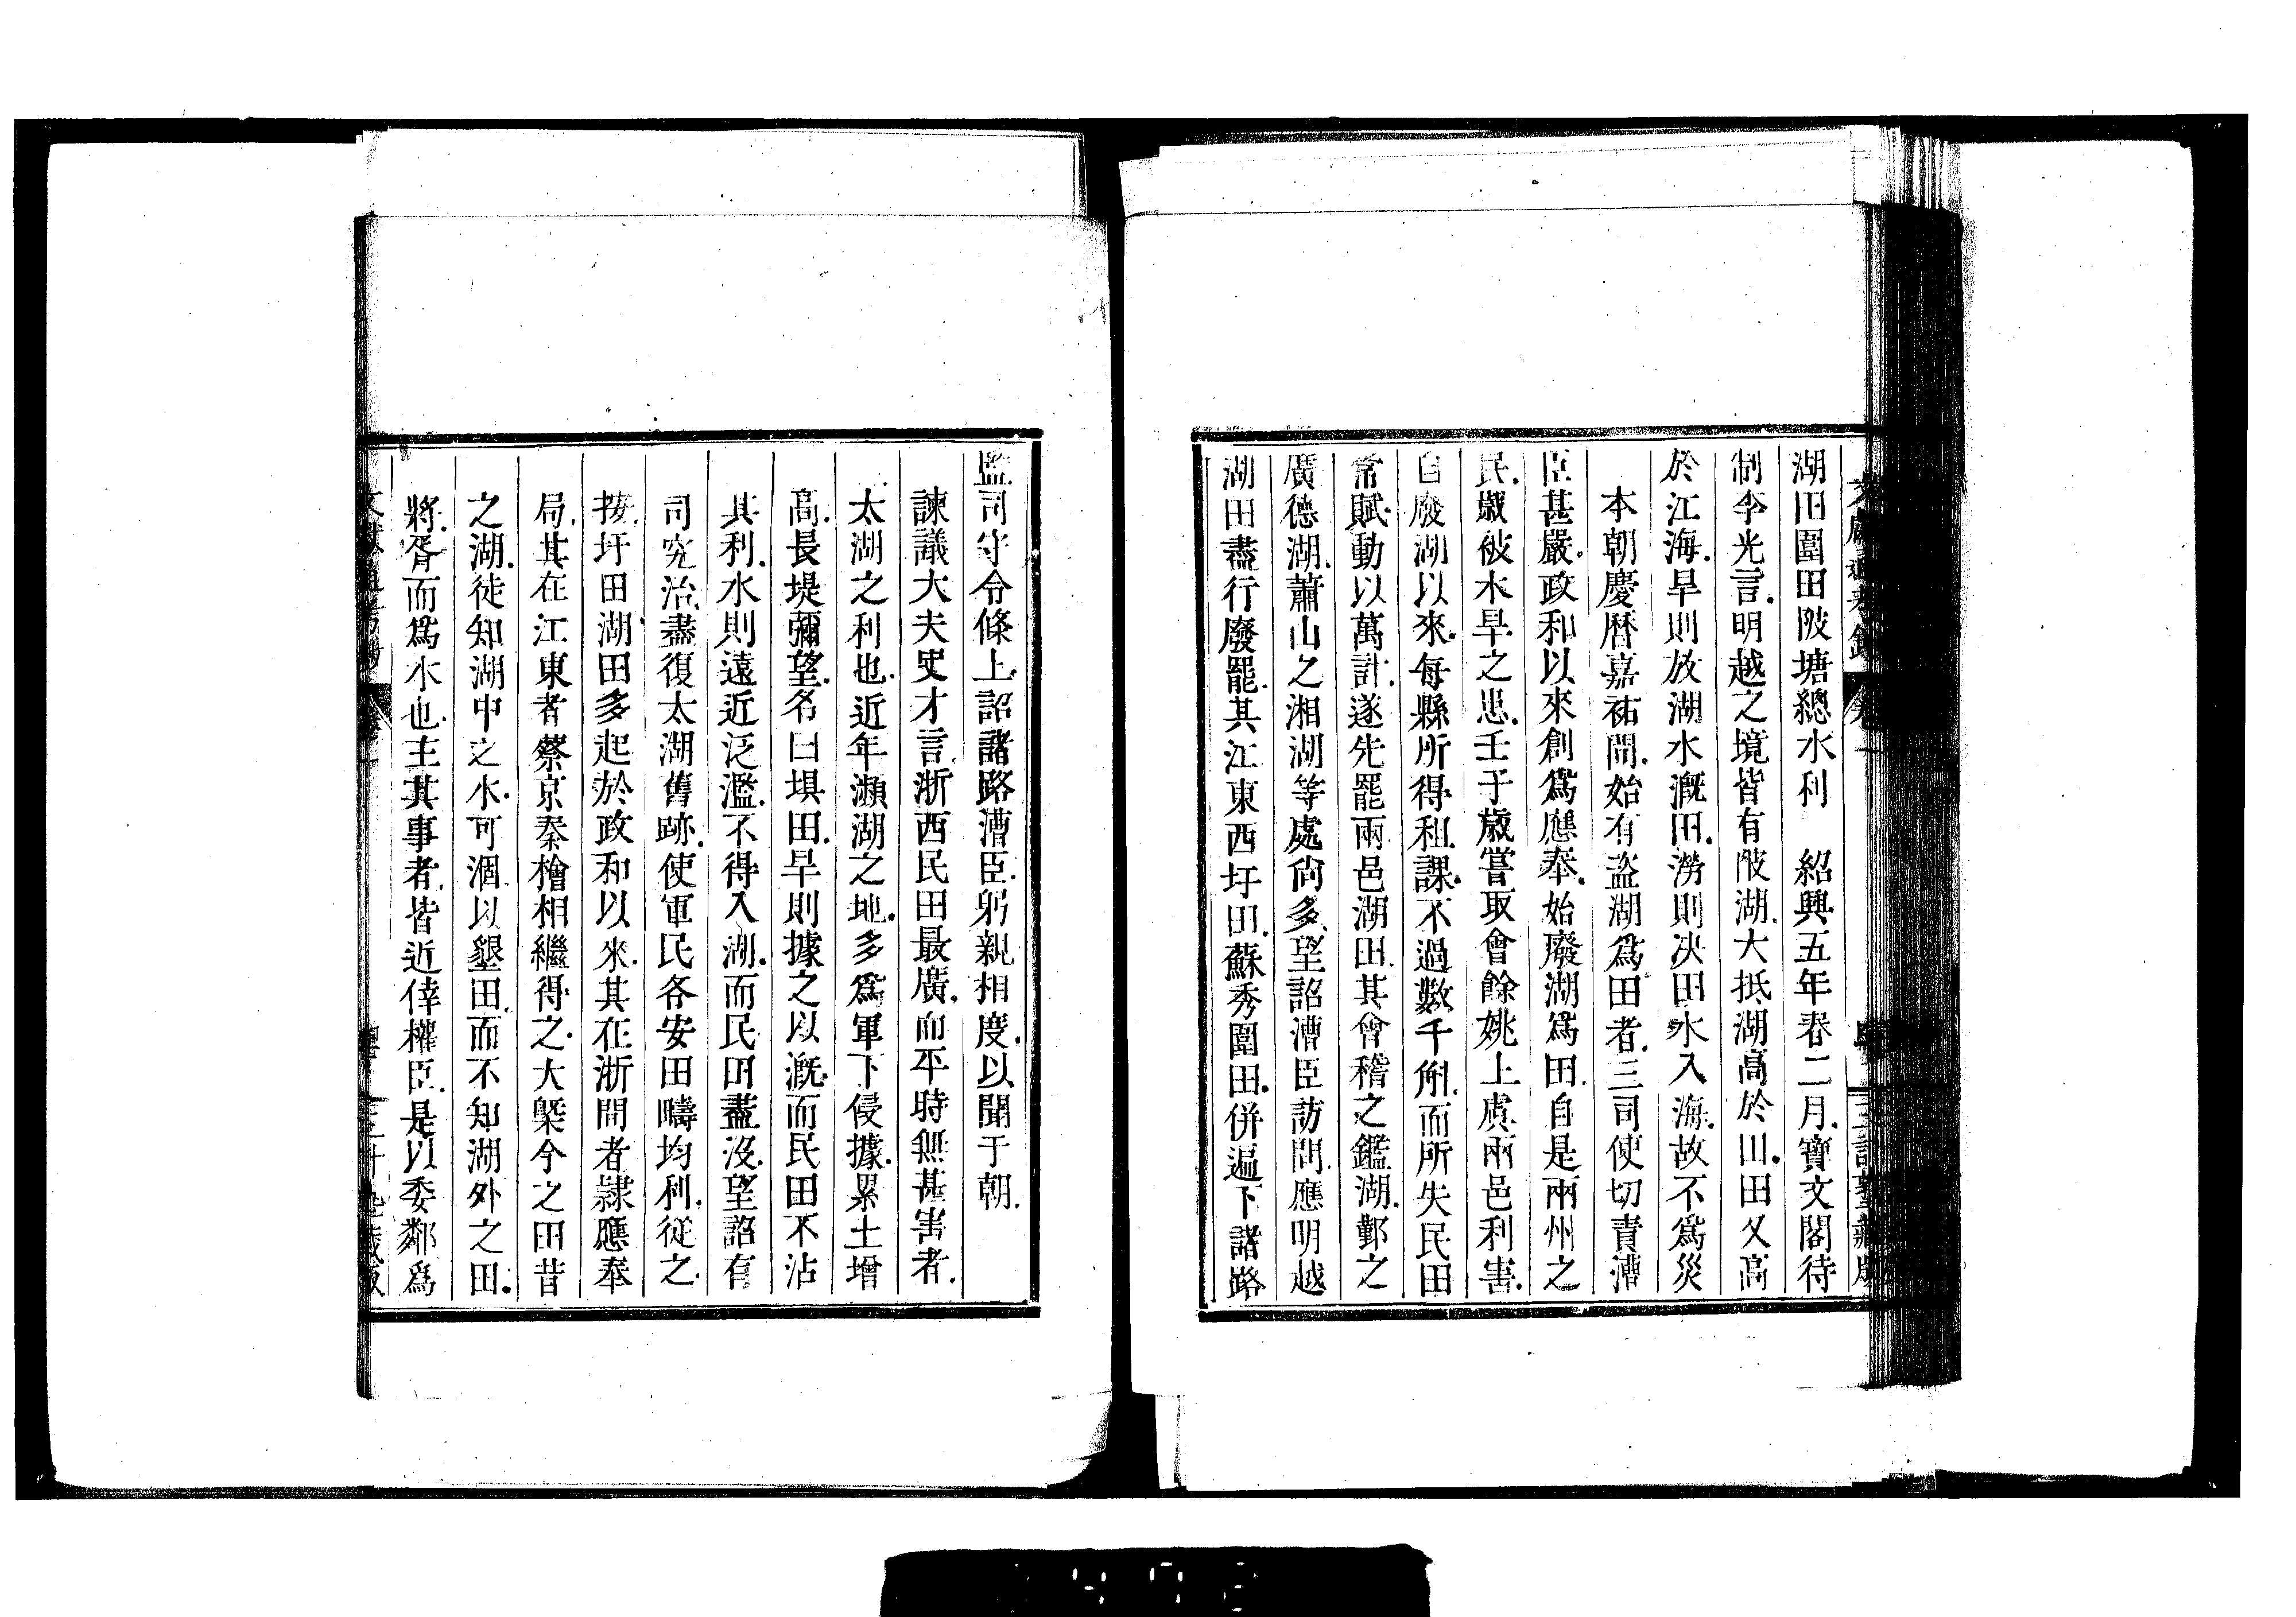 湖田圍田陂塘總水利　紹興五年春二月寶文閣待
制李光言明越之境皆有陂湖大抵湖高於田田又高
於江海旱則放湖水漑田澇則决田水入海故不爲災
本朝慶曆嘉祐間始有盜湖爲田者三司使切責漕
臣甚嚴政和以來創爲應奉始廢湖爲田自是兩州之
民歲被水旱之患壬子歲嘗取會餘姚上虞兩邑利害
自廢湖以來每縣所得租課不過數千斛而所失民田
常賦動以萬計遂先罷兩邑湖田其會稽之鑑湖鄞之
廣德湖蕭山之湘湖等處尙多望詔漕臣訪問應明越
湖田盡行廢罷其江東西圩田蘇秀圍田併遍下諸路
監司守令條上詔諸路漕臣躬親相度以聞于朝
諫議大夫史才言浙西民田最廣而平時無甚害者
太湖之利也近年瀕湖之地多爲軍下侵據累土增
高長堤彌望名曰垻田旱則據之以漑而民田不沾
其利水則遠近泛濫不得入湖而民田盡没望詔有
司究治盡復太湖舊跡使軍民各安田疇均利從之
按圩田湖田多起於政和以來其在浙間者隸應奉
局其在江東者蔡京秦檜相繼得之大槩今之田昔
之湖徒知湖中之水可涸以墾田而不知湖外之田
將胥而爲水也主其事者皆近倖權臣是以委鄰爲